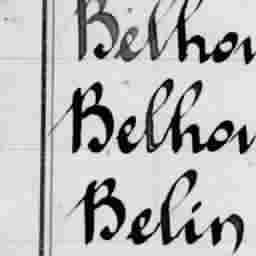 Belhou
Belhou
Belin